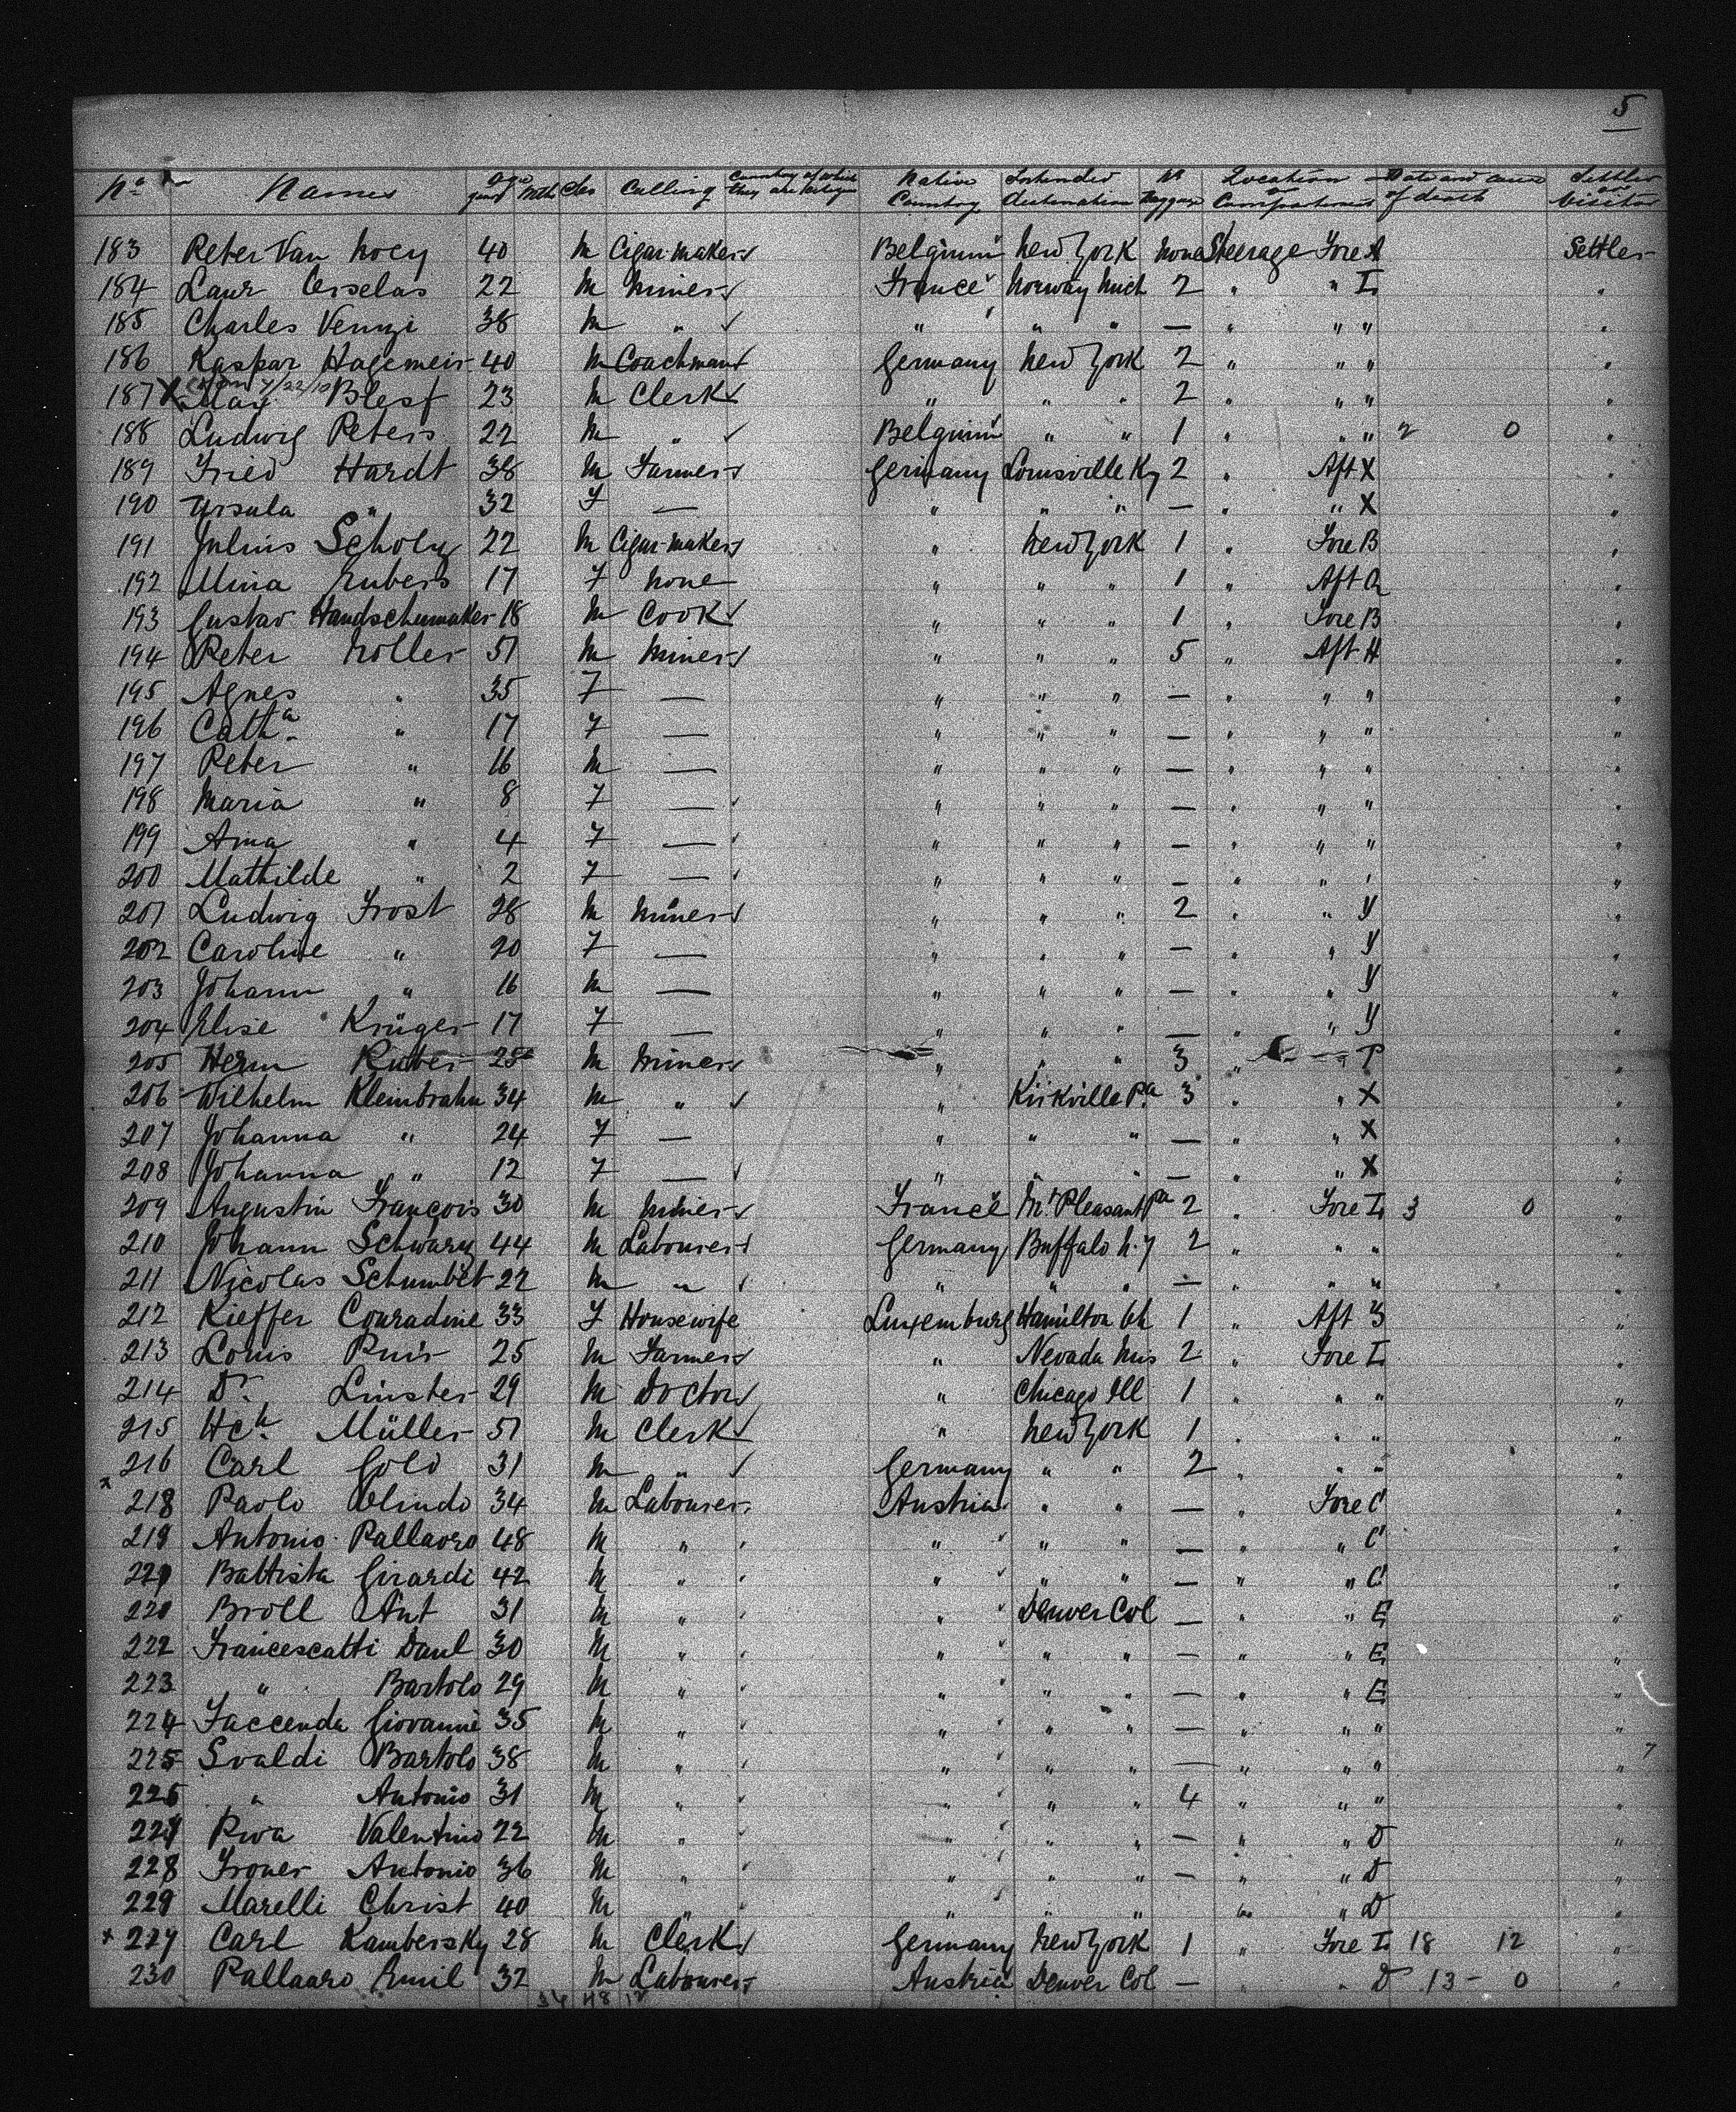 5
No Names Age years Mths Sex Calling Country of which they are Citizens Native Country Intended destination No Baggage Location or Compartment Date and cause of death Settler or Visitor
183 Peter Van 40 M Cigar-maker Belgium New York none Steerage Fore A Settler
184 Laur 22 M Miner France Norway Mich 2 " " I "
185 Charles 38 M " " " " — " " " "
186 Kaspar Hagemeir 40 M Coachman Germany New York 2 " " " "
187 X May Blesf 23 M Clerk " " " 2 " " " "
188 Ludwig Peters 22 M " Belgium " " 1 " " " 2 0 "
189 Fried Hardt 38 M Farmer Germany Louisville Ky 2 " Aft X "
190 Ursula " 32 F — " " " — " " X "
191 Julius Scholz 22 M Cigar-maker " New York 1 " Fore B "
192 Mina Eubers 17 F none " " " 1 " Aft Q "
193 Gustav Handschumaker 18 M Cook " " " 1 " Fore B "
194 Peter Noller 51 M Miner " " " 5 " Aft H "
195 Agnes " 35 F — " " " — " " " "
196 Catha " 17 F — " " " — " " " "
197 Peter " 16 M — " " " — " " " "
198 Maria " 8 F — " " " — " " " "
199 Anna " 4 F — " " " — " " " "
200 Mathilde " 2 F — " " " — " " " "
201 Ludwig Frost 28 M Miner " " " 2 " " Y "
202 Caroline " 20 F — " " " — " " Y "
203 Johann " 16 M — " " " — " " Y "
204 Elise Krüger 17 F — " " " — " " Y "
205 Herm Ruber 25 M Miner " " " 3 " P "
206 Wilhelm Kleinbrahm 34 M " " Kirkville Pa 3 " " X "
207 Johanna " 24 F — " " " — " " X "
208 Johanna " 12 F — " " " — " " X "
209 Augustin François 30 M Miner France Mt Pleasant Pa 2 " Fore I 3 0 "
210 Johann Schwarz 44 M Labourer Germany Buffalo N.Y 2 " " " "
211 Nicolas Schumbet 22 M " " " " — " " " "
212 Kieffer Conradine 33 F Housewife Luxemburg Hamilton Oh 1 " Aft Z "
213 Louis Ruis 25 M Farmer " Nevada Mis 2 " Fore I "
214 Dr. Linster 29 M Doctor " Chicago Ill 1 " " " "
215 Hch. Müller 51 M Clerk " New York 1 " " " "
216 Carl Gold 31 M " Germany " " 2 " " " "
x 218 Paolo Olindo 34 M Labourer Austria " " — " Fore C "
219 Antonio Pallaoro 48 M " " " " — " " C "
220 Battista Girardi 42 M " " " " — " " C "
221 Broll Ant 31 M " " Denver Col — " " E "
222 Francescatti Danl 30 M " " " " — " " E "
223 " Bartolo 29 M " " " " — " " E "
224 Faccenda Giovanni 35 M " " " " — " " " "
225 Svaldi Bartolo 38 M " " " " — " " " "
226 " Antonio 31 M " " " " 4 " " " "
227 Riva Valentino 22 M " " " " — " " D "
228 Froner Antonio 36 M " " " " — " " D "
229 Marelli Christ 40 M " " " " " " D "
x 229 Carl Kambersky 28 M Clerk Germany New York 1 " Fore I 18 12 "
230 Pallaoro Emil 32 M Labourer Austria Denver Col — " " D 13 - 0 "
34 48 12